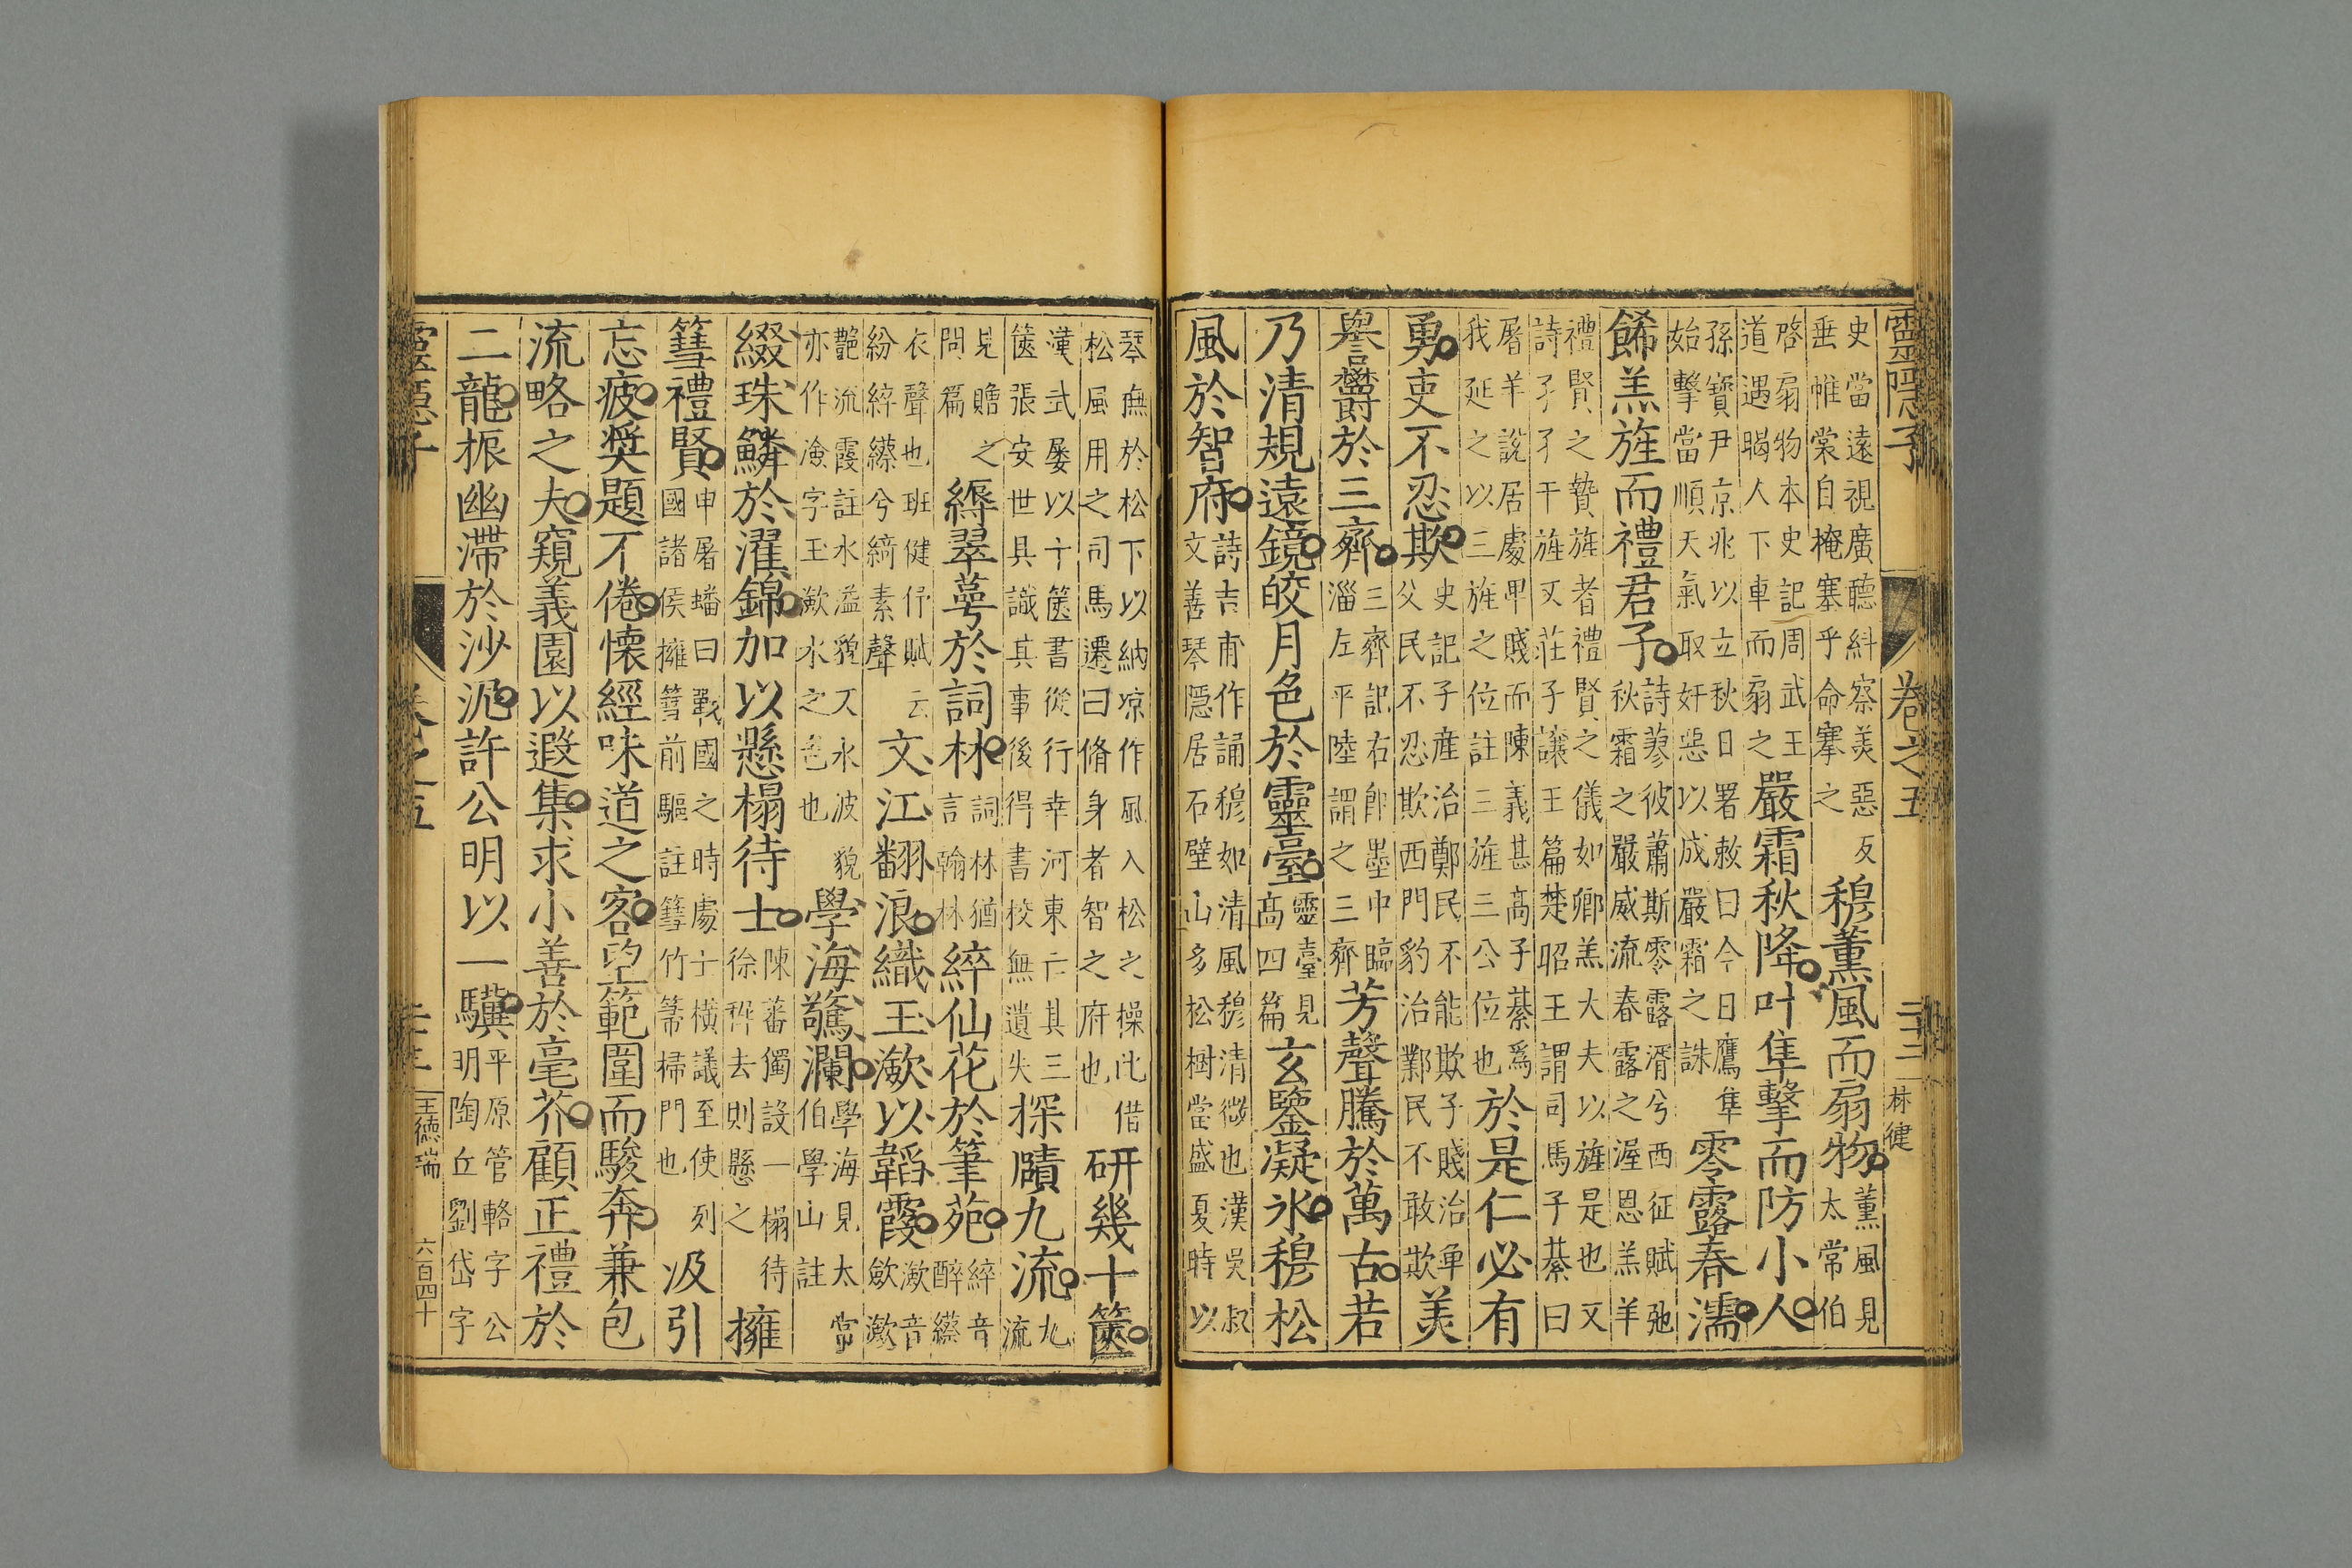 靈隱子 卷之五 二十二 林健
史當遠視廣聽糾察美惡反
垂帷裳自掩塞乎命搴之
穆薰風而扇物
薰風見
太常伯
啓扇物本史記周武王
道遇暍人下車而扇之
嚴霜秋降叶隼擊而防小人
孫寶尹京兆以立秋日署敕曰今日鷹隼
始擊當順天氣取奸惡以成嚴霜之誅
零露春濡
餙羔旌而禮君子
詩蓼彼蕭斯零露湑兮西征賦弛
秋霜之嚴威流春露之渥恩羔羊
禮賢之贄旌者禮賢之儀如卿羔大夫以旌是也又
詩孑孑干旌又莊子讓王篇楚昭王謂司馬子綦曰
屠羊說居處卑賤而陳義甚高子綦爲
我延之以三旌之位註三旌三公位也
於是仁必有
勇吏不忍欺
史記子產治鄭民不能欺子賤治單
父民不忍欺西門豹治鄴民不敢欺
美
譽欝於三齊
三齊記右卽墨中臨
淄左平陸謂之三齊
芳聲騰於萬古若
乃清規遠鏡皎月色於靈臺
靈臺見
高四篇
玄鑒凝氷穆松
風於智府
詩吉甫作誦穆如清風穆清微也漢吳叔
文善琴隱居石壁山多松樹當盛夏時以
琴橅於松下以納凉作風入松之操此借
松風用之司馬遷曰脩身者智之府也
研幾十篋
漢武屡以十篋書從行幸河東亡其三
篋張安世具識其事後得書校無遺失
探賾九流
九
流
見瞻之
問篇
縟翠萼於詞林
詞林猶
言翰林
綷仙花於筆苑
綷音
醉縩
衣聲也班健伃賦云
紛綷縩兮紈素聲
文江翻浪織王潋以韜霞
潋音
歛潋
艷流霞註水溢貌又水波貌
亦作澰字玉潋水之色也
學海驚瀾
學海見太常
伯學山註
綴珠鱗於濯錦加以懸榻待士
陳蕃獨設一榻待
徐稺去則懸之
擁
篲禮賢
申屠蟠曰戰國之時處士橫議至使列
國諸侯擁篲前驅註篲竹箒掃門也
汲引
忘疲奨題不倦懷經味道之客望範圍而駿奔兼包
流略之夫窺義園以遐集求小善於毫芥顧正禮於
二龍振幽滯於沙泥許公明以一驥
平原管輅字公
明陶丘劉岱字
靈隱子 卷之五 二十三 王德瑞 六百四十